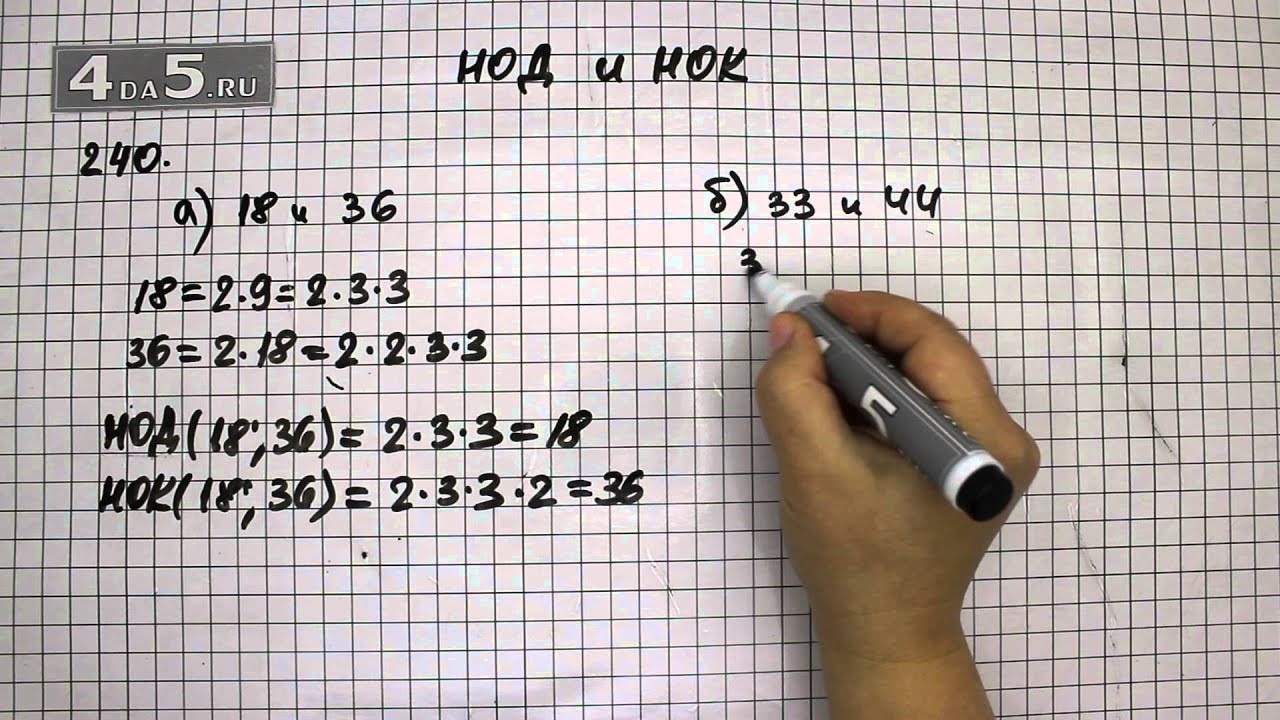 4DA5.RU
НОД и НОК
240.
а) 18 и 36
18 = 2 · 9 = 2 · 3 · 3
36 = 2 · 18 = 2 · 2 · 3 · 3
НОД(18; 36) = 2 · 3 · 3 = 18
НОК(18; 36) = 2 · 3 · 3 · 2 = 36
б) 33 и 44
3